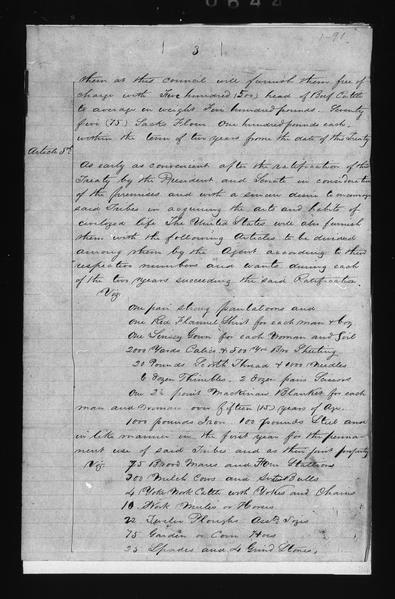 3
them at this council will furnish them free of
charge with Five hundred (500) head of Beef Cattle
to average in weight Five hundred pounds. Seventy
five (75) Sacks Flour One hundred pounds each
within the term of two years from the date of this Treaty
Article 5th
As early as convenient after the ratification of this
Treaty by the President and Senate in consideration
of the premises and with a sincere desire to encourage
said Tribes in acquiring the arts and habits of
civilized life The United States will also furnish
them with the following Articles to be divided
among them by the Agent according to their
respective numbers and wants during each
of the two years succeeding the said Ratification
Viz
One pair strong pantaloons and
one Red Flannel Shirt for each man & boy
One Linsey Gown for each Woman and Girl
2000 Yards Calico & 500 Yds Bro Sheeting
20 Pounds Scotch Thread & 1000 Needles
6 Dozen Thimbles. 2 Dozen pairs Scissors
One 2½ point Mackinaw Blanket for each
man and woman over fifteen (15) years of Age.
1000 pounds Iron 100 pounds Steel and
in like manner in the first year for the perma
nent use of said Tribes and as their joint property
Viz 75 Brood Mares and Three Stallions
300 Milch Cows and Bulls
4 Yoke Work Cattle with Yokes and Chains
10 Work Mules or Horses
22 Ploughs Sizes
75 Garden or Corn Hoes
25 Spades and 4 Grind Stones.